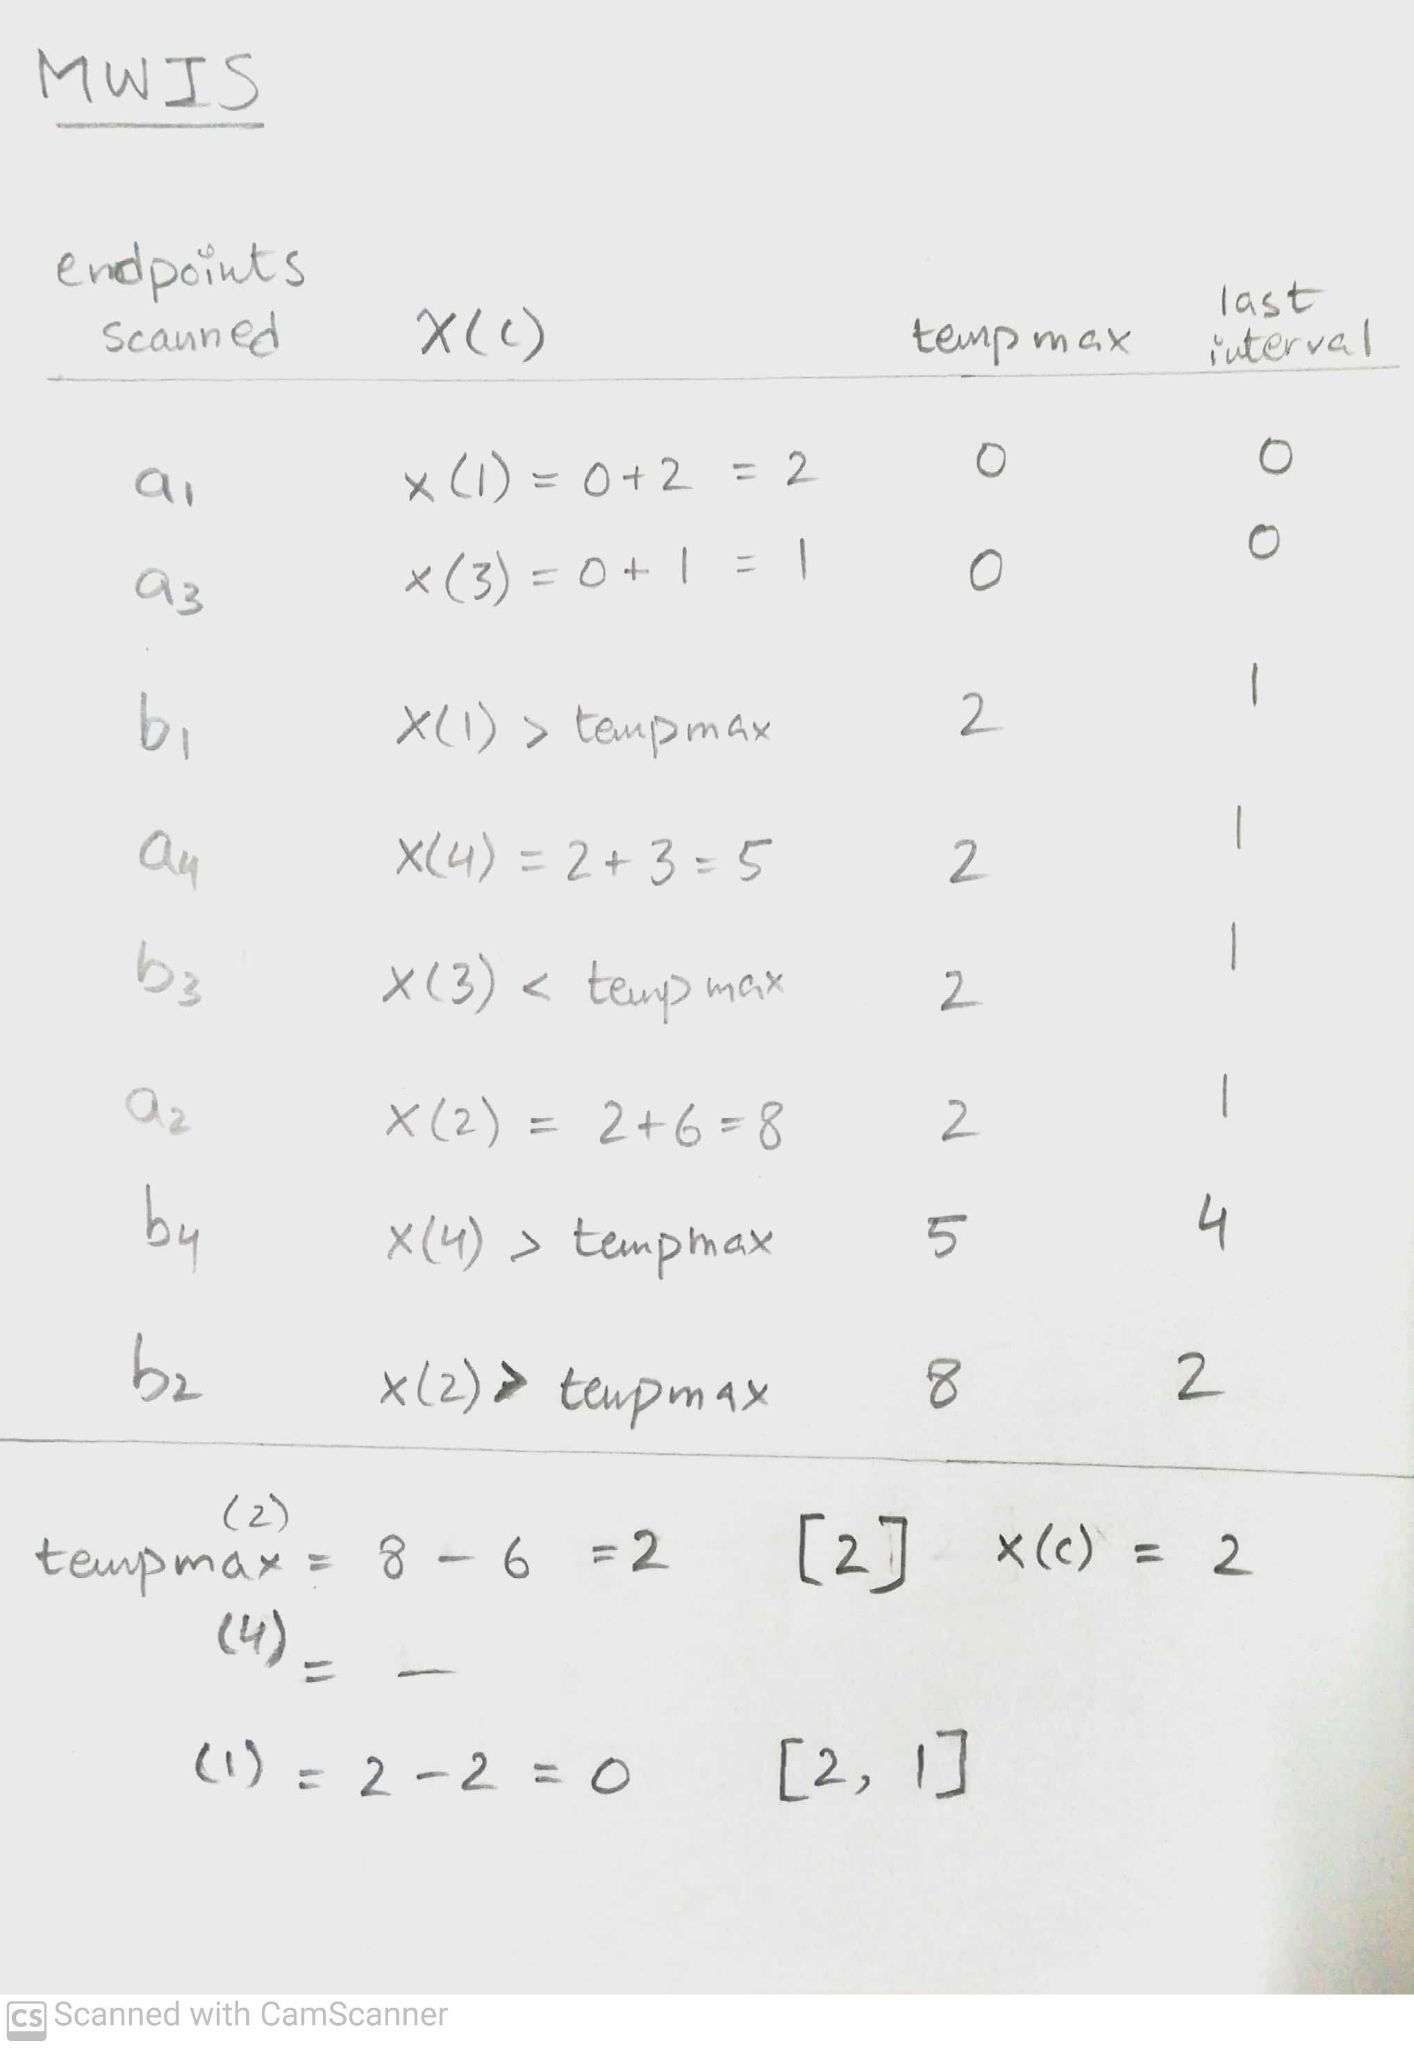 MWIS
endpoints
scanned X(c) tempmax last interval
a1 x(1) = 0+2 = 2 0 0
a3 x(3) = 0+1 = 1 0 0
b1 X(1) > tempmax 2 1
a4 X(4) = 2+3=5 2 1
b3 X(3) < tempmax 2 1
a2 X(2) = 2+6=8 2 1
b4 X(4) > tempmax 5 4
b2 X(2) > tempmax 8 2
(2)
tempmax = 8 - 6 =2 [2] x(c) = 2
(4) = —
(1) = 2-2 = 0 [2, 1]
CS Scanned with CamScanner